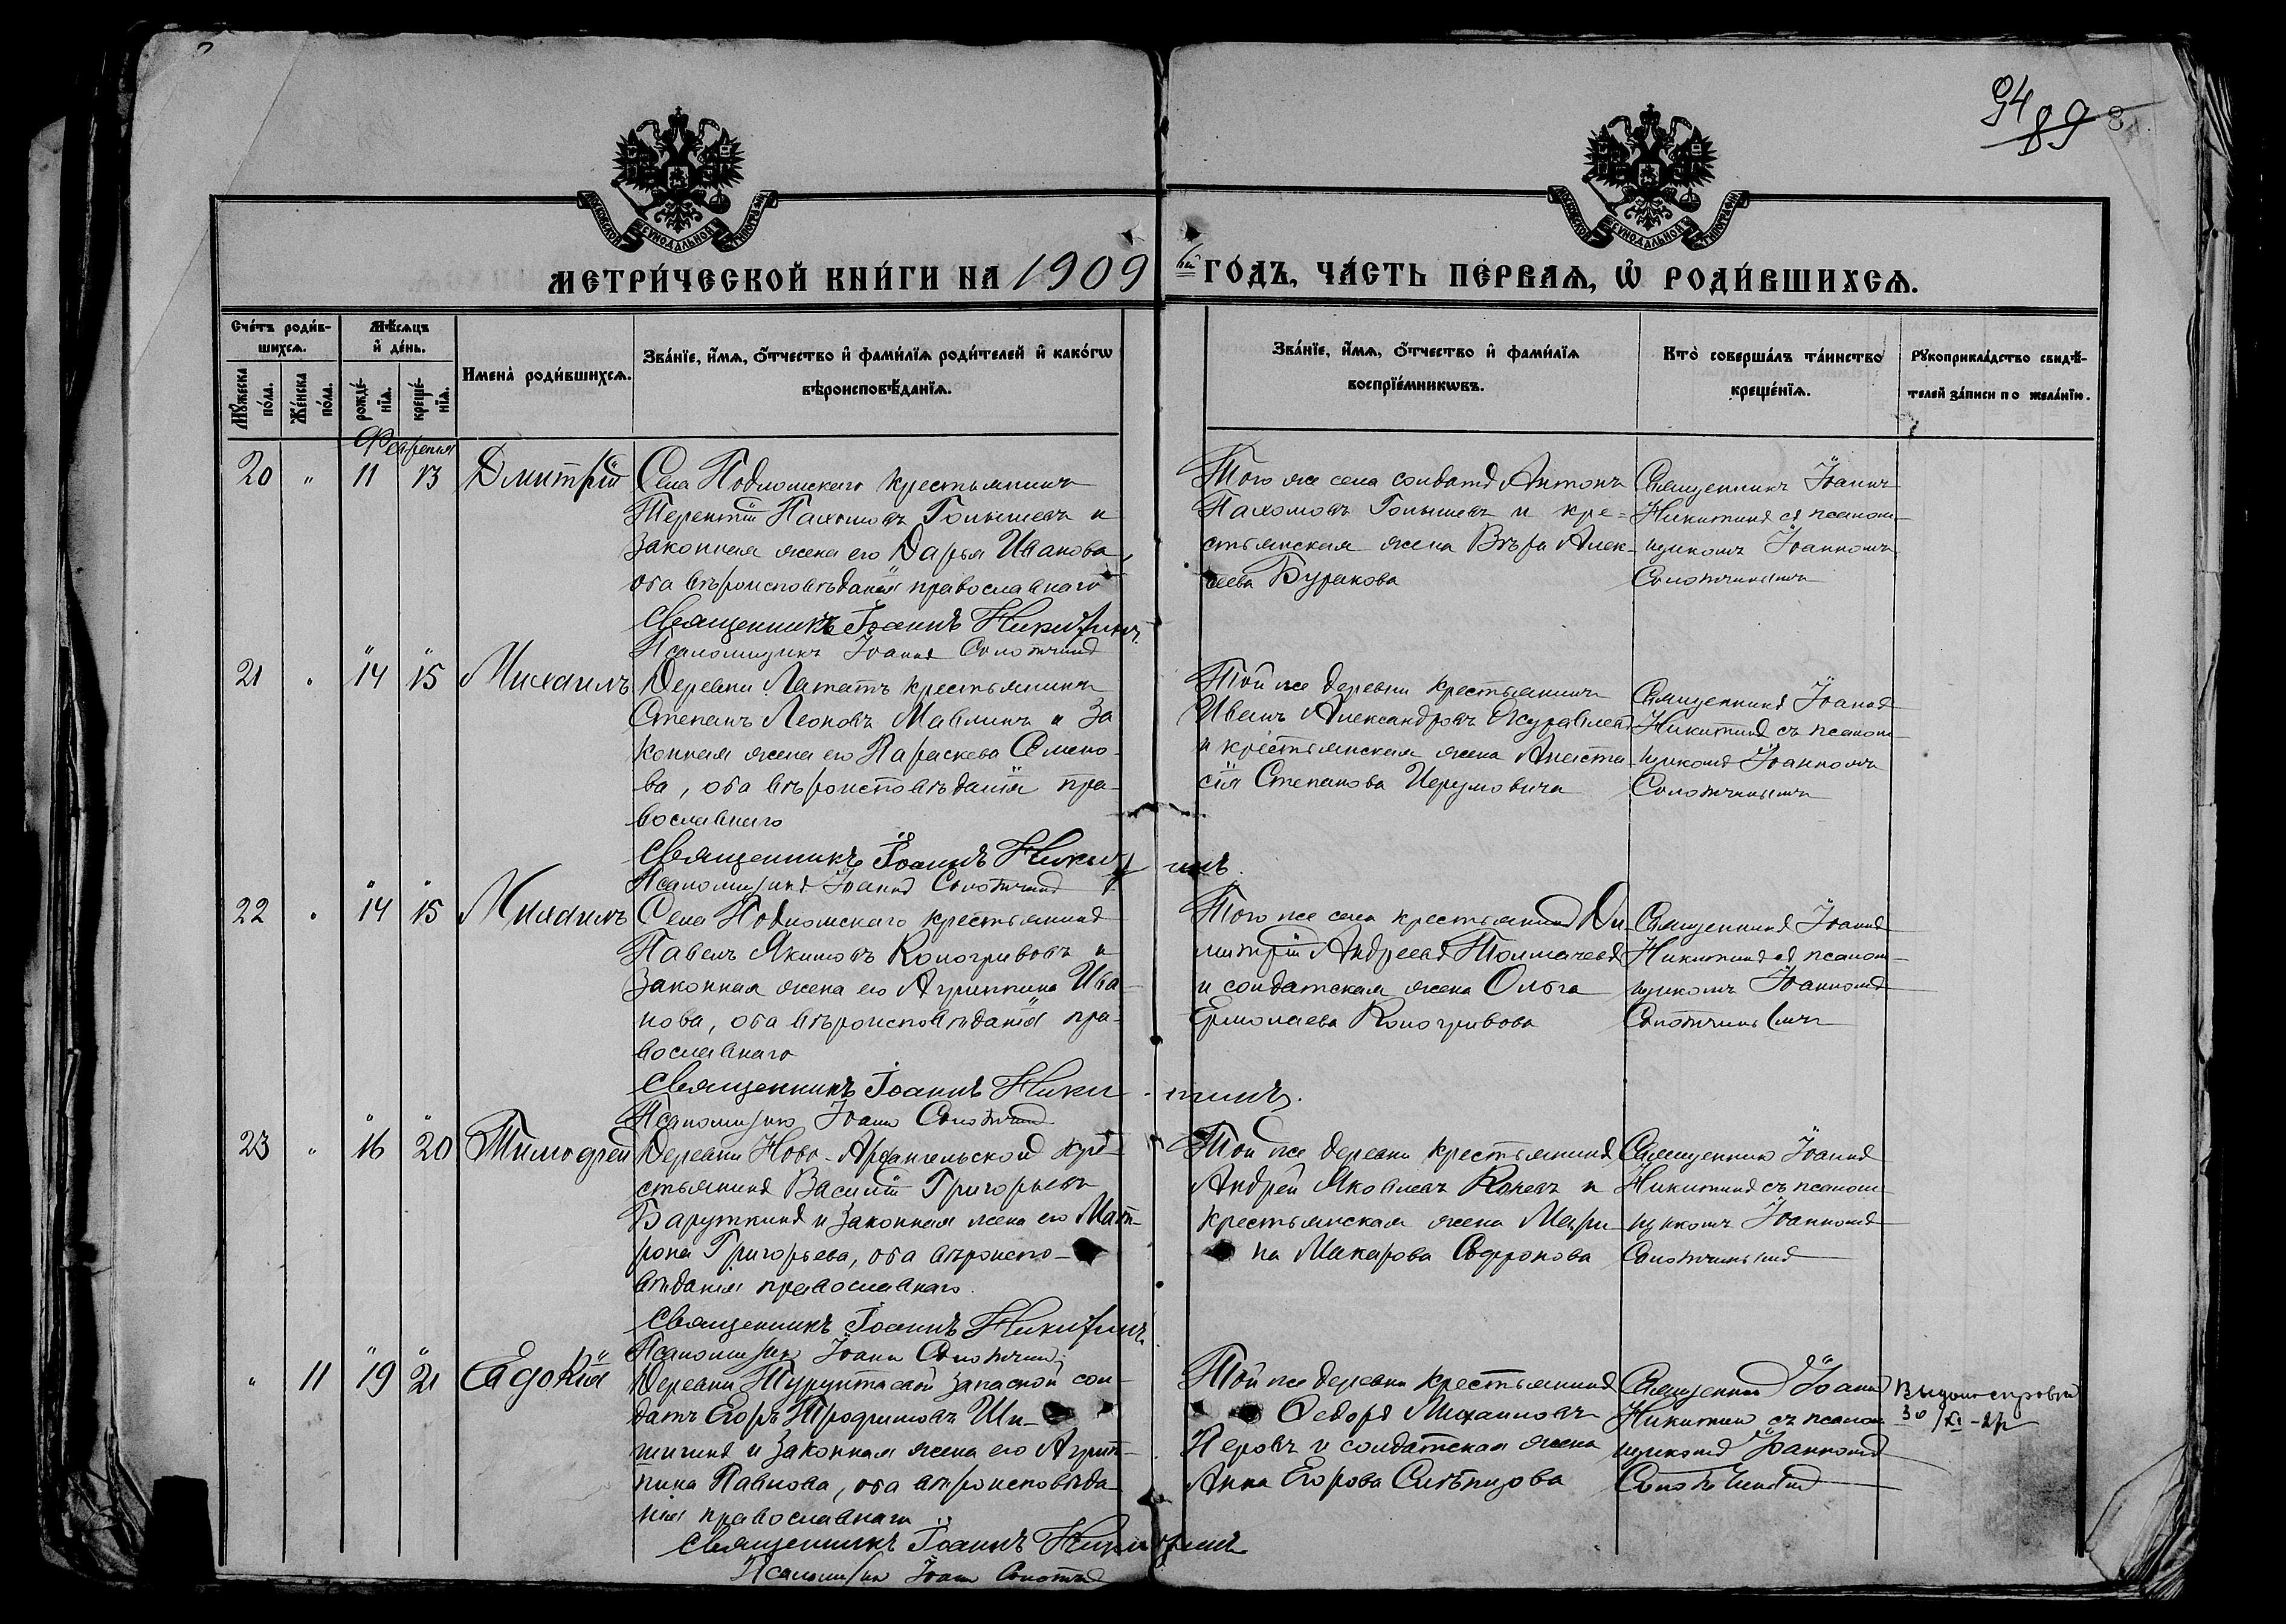 94
89
МОСКОВСКОЙ СѴНОДАЛЬНОЙ ТИПОГРАФІИ
МОСКОВСКОЙ СѴНОДАЛЬНОЙ ТИПОГРАФІИ
МЕТРИ́ЧЕСКОЙ КНИ́ГИ НА 1909 ГО́ДЪ, ЧА́СТЬ ПЕ́РВАѦ, Ѡ҆ РОДИ́ВШИХСѦ.
Сче́тъ роди́в-
шихсѧ.
Мꙋ́жеска по́ла.
Же́нска по́ла.
Мѣ́сѧцъ
и҆ де́нь.
рожде́-
нїѧ.
креще́-
нїѧ.
Имена̀ роди́вшихсѧ.
Зва́нїе, и҆́мѧ, ѻ҆́тчество и҆ фами́лїѧ роди́телей и҆ како́гѡ
вѣроисповѣ́данїѧ.
Зва́нїе, и҆́мѧ, ѻ҆́тчество и҆ фами́лїѧ
воспрїе́мникѡвъ.
Кто̀ соверша́лъ та́инство
креще́нїѧ.
Рꙋкоприкла́дство свидѣ́-
телей за́писи по жела́нїю.
Февраля
20 " 11 13 Дмитрій
Села Подломскаго крестьянинъ
Терентій Пахомовъ Голышевъ и
законная жена его Дарья Иванова,
оба вѣроисповѣданія православнаго
Священникъ Іоаннъ Никитинъ.
Псаломщикъ Іоаннъ Солотчинъ
Того же села солдатъ Антонъ
Пахомовъ Голышевъ и кре-
стьянская жена Вѣра Алек-
сеева Буракова
Священникъ Іоаннъ
Никитинъ съ псалом-
щикомъ Іоанномъ
Солотчинымъ
21 " 14 15 Михаилъ
Деревни Лататъ крестьянинъ
Степанъ Леоновъ Мавлинъ и за
конная жена его Параскева Семено-
ва, оба вѣроисповѣданія пра-
вославнаго
Священникъ Іоаннъ Никитинъ.
Псаломщикъ Іоаннъ Солотчинъ
Той же деревни крестьянинъ
Иванъ Александровъ Журавлевъ
и крестьянская жена Анаста
сія Степанова
Священникъ Іоаннъ
Никитинъ съ псалом-
щикомъ Іоанномъ
Солотчинымъ
22 " 14 15 Михаилъ
Села Подломскаго крестьянинъ
Павелъ Якимовъ Кологривовъ и
законная жена его Агриппина Ива-
нова, оба вѣроисповѣданія пра-
вославнаго
Священникъ Іоаннъ Никитинъ.
Псаломщикъ Іоаннъ Солотчинъ
Того же села крестьянинъ Ди-
митрій Андреевъ Толмачевъ
и солдатская жена Ольга
Ермолаева Кологривова
Священникъ Іоаннъ
Никитинъ съ псалом-
щикомъ Іоанномъ
Солотчинымъ
23 " 16 20 Тимофей
Деревни Ново-Архангельской кре-
стьянинъ Василій Григорьевъ
Баруткинъ и законная жена его Мат-
рона Григорьева, оба вѣроиспо-
вѣданія православнаго.
Священникъ Іоаннъ Никитинъ.
Псаломщикъ Іоаннъ Солотчинъ
Той же деревни крестьянинъ
Андрей Яковлевъ Коневъ и
крестьянская жена Мари-
на Макарова Софронова
Священникъ Іоаннъ
Никитинъ съ псалом-
щикомъ Іоанномъ
Солотчинымъ
" 11 19 21 Евдокія
Деревни Турунтаевой запасной сол-
датъ Егоръ Трофимовъ Ши-
шигинъ и законная жена его Агрип-
пина Павлова, оба вѣроисповѣда
нія православнаго
Священникъ Іоаннъ Никитинъ
Псаломщикъ Іоаннъ Солотчинъ
Той же деревни крестьянинъ
Ѳедоръ Михаиловъ
Перовъ и солдатская жена
Анна Егорова Слѣпцова
Священникъ Іоаннъ
Никитинъ съ псалом-
щикомъ Іоанномъ
Солотчинымъ